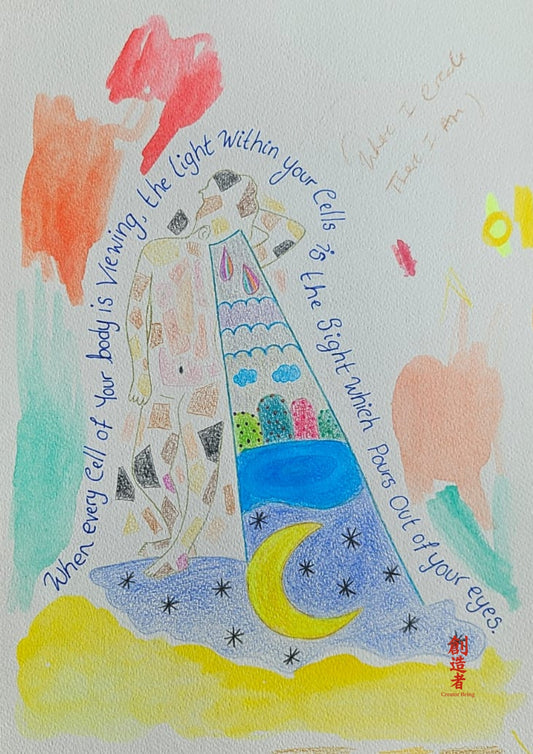 When every Cell of Your body is Viewing, the Light Within your Cells is the Sight Which Pours Out of your eyes.
(What I Create
That I Am)
創造者
Creator Being